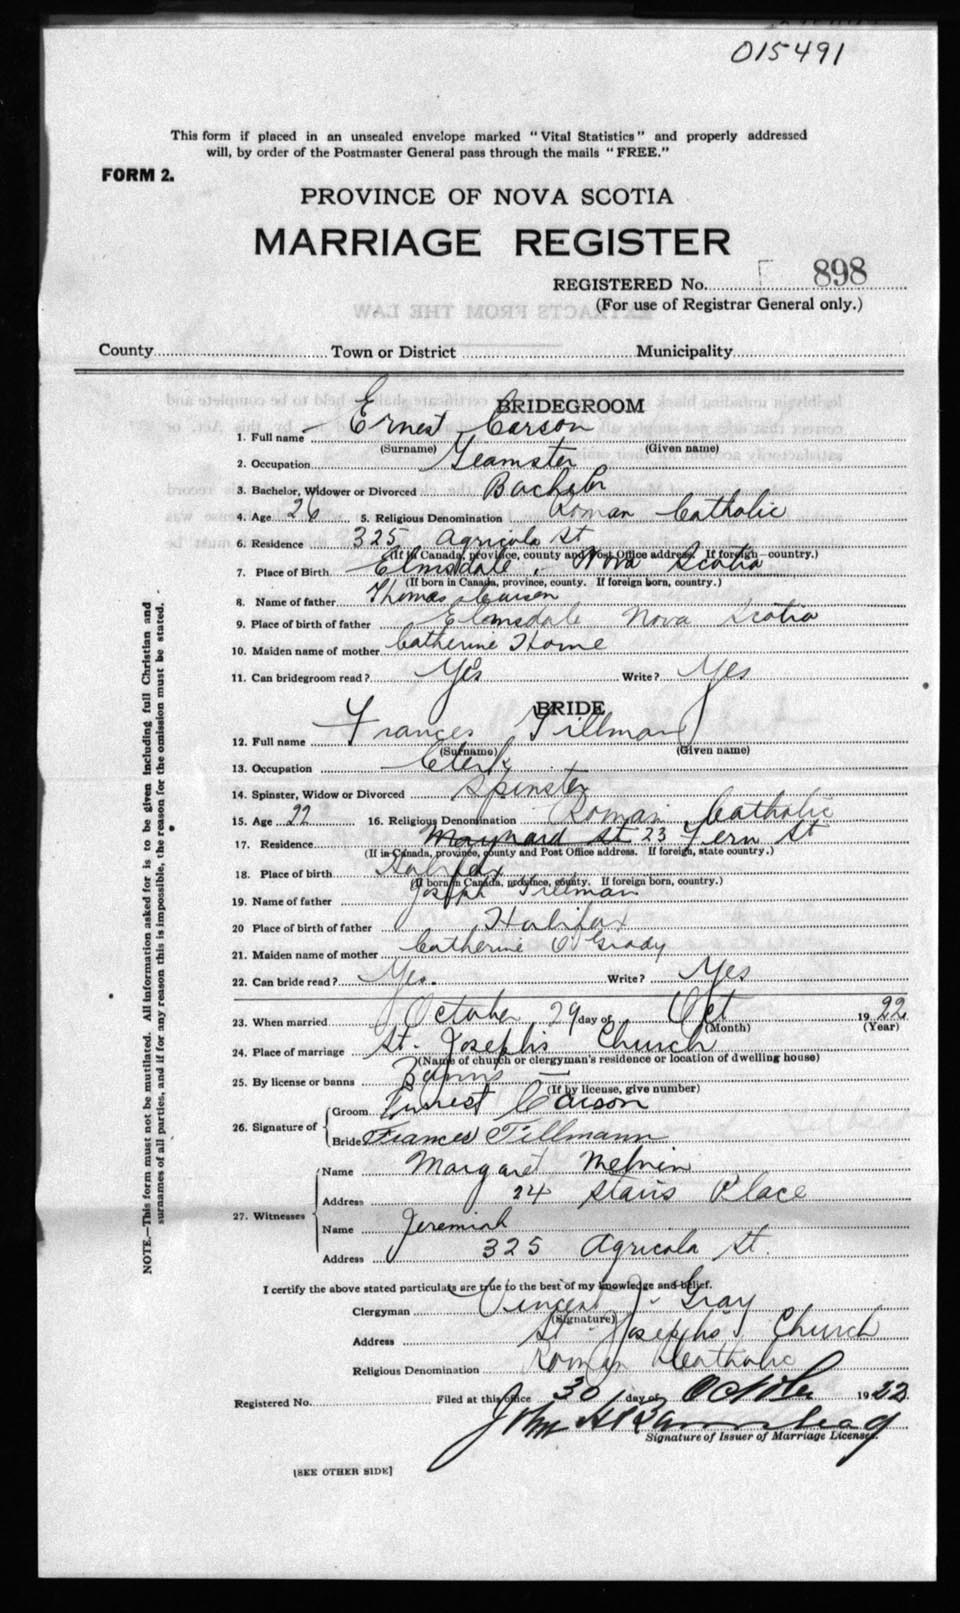 015491
This form if placed in an unsealed envelope marked "Vital Statistics" and properly addressed
will, by order of the Postmaster General pass through the mails "FREE."
FORM 2.
PROVINCE OF NOVA SCOTIA
MARRIAGE REGISTER
REGISTERED No. 898
(For use of Registrar General only.)
EXTRACTS FROM THE LAW
County Town or District Municipality
BRIDEGROOM
1. Full name Ernest Carson
(Surname) (Given name)
2. Occupation Teamster
3. Bachelor, Widower or Divorced Bachelor
4. Age 26 5. Religious Denomination Roman Catholic
6. Residence 325 Agricola St
(If in Canada, province, county and Post Office address. If foreign—country.)
7. Place of Birth Elmsdale, Nova Scotia
(If born in Canada, province, county. If foreign born, country.)
8. Name of father Thomas Carson
9. Place of birth of father Elmsdale Nova Scotia
10. Maiden name of mother Catherine Horne
11. Can bridegroom read? Yes Write? Yes
BRIDE
12. Full name Frances Tillman
(Surname) (Given name)
13. Occupation Clerk
14. Spinster, Widow or Divorced Spinster
15. Age 22 16. Religious Denomination Roman Catholic
17. Residence Maynard St 23 Fern St
(If in Canada, province, county and Post Office address. If foreign, state country.)
18. Place of birth Halifax
(If born in Canada, province, county. If foreign born, country.)
19. Name of father Joseph Tillman
20 Place of birth of father Halifax
21. Maiden name of mother Catherine O'Grady
22. Can bride read? Yes. Write? Yes
23. When married October 29 day of Oct 1922
(Month) (Year)
24. Place of marriage St. Joseph's Church
(Name of church or clergyman's residence or location of dwelling house)
25. By license or banns Banns —
(If by license, give number)
26. Signature of Groom Ernest Carson
Bride Frances Tillmann
27. Witnesses
Name Margaret
Address 24 Place
Name Jeremiah
Address 325 Agricola St.
I certify the above stated particulars are true to the best of my knowledge and belief.
Clergyman Vincent J. Gray
(Signature)
Address St Joseph's Church
Religious Denomination Roman Catholic
Registered No. Filed at this office 30 day of October 1922
John H Barnstead
Signature of Issuer of Marriage Licenses.
[SEE OTHER SIDE]
NOTE.—This form must not be mutilated. All information asked for is to be given including full Christian and
surnames of all parties, and if for any reason this is impossible, the reason for the omission must be stated.